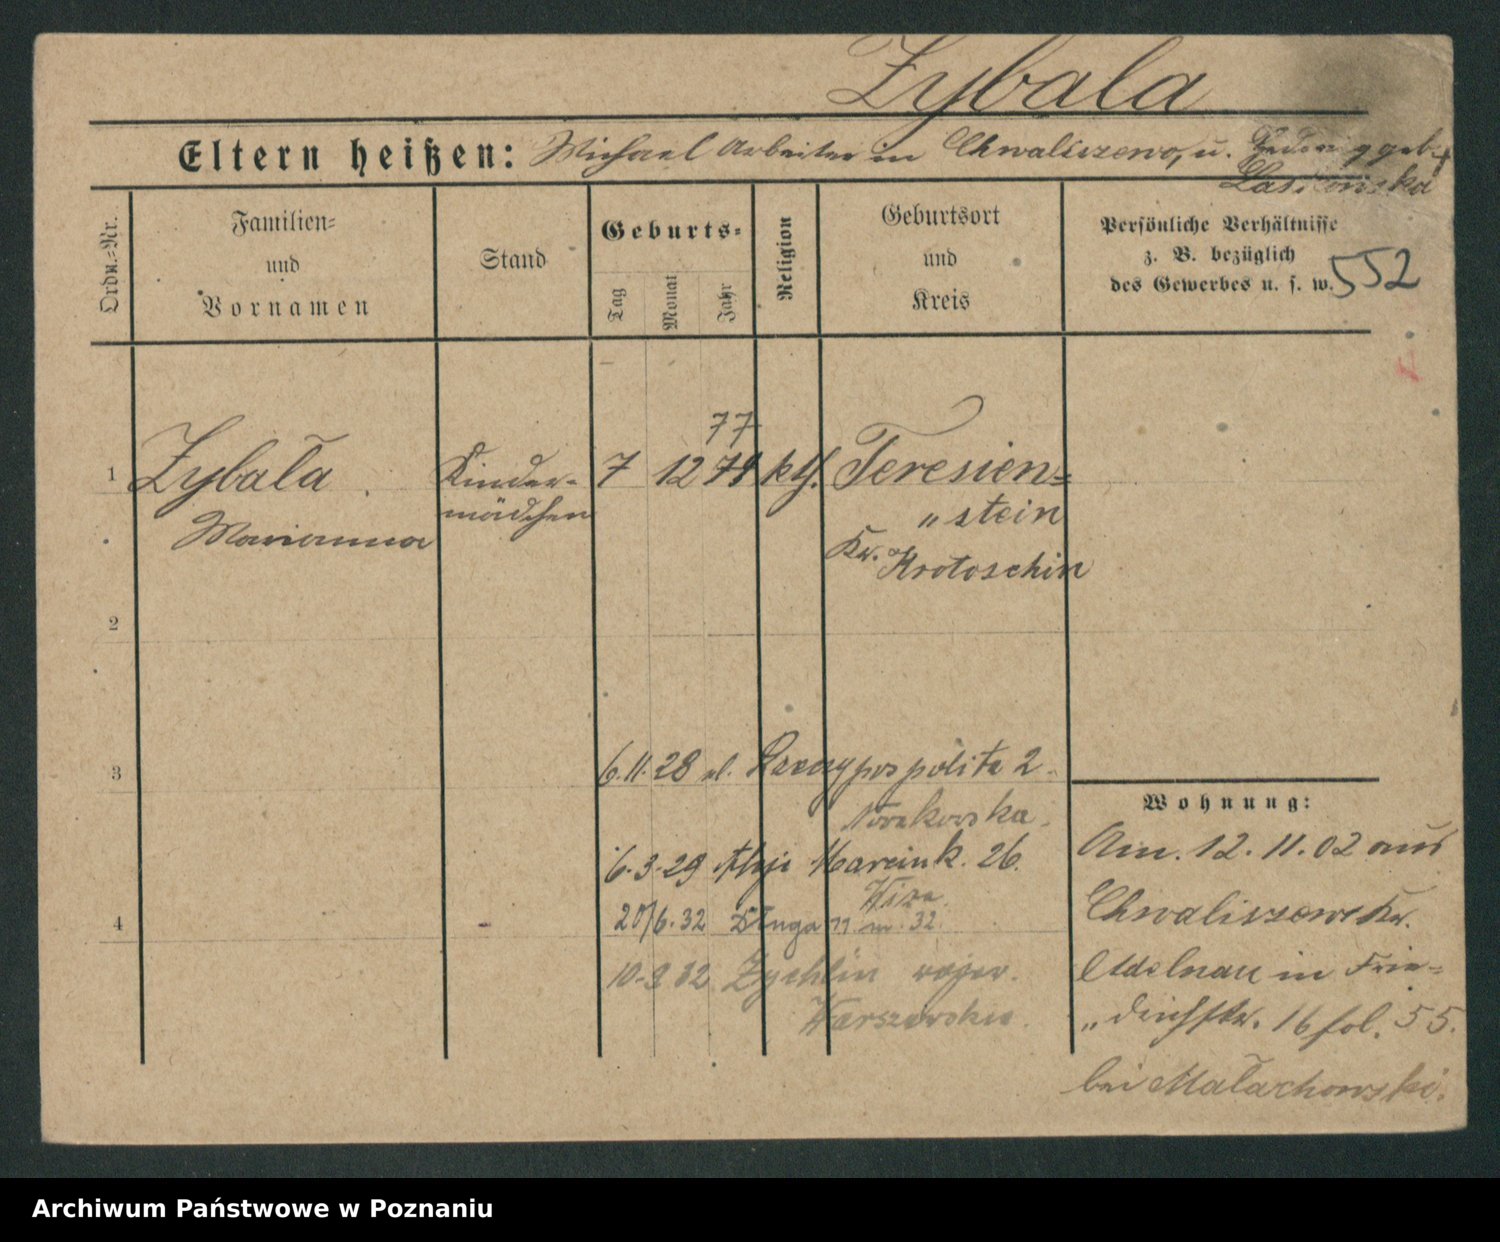 Zybala
Eltern heißen: Michael Arbeiter in Chwaliszewo, u. Hedwig geb.
Ordn.-Nr.
Familien-
und
Vornamen
Stand
Geburts-
Tag
Monat
Jahr
Religion
Geburtsort
und
Kreis
Persönliche Verhältnisse
z. B. bezüglich
des Gewerbes u. s. w.
552
77
1 Zybała Kinder- 7 12 74 kth. Teresien-
Marianna mädchen „stein
Kr. Krotoschin
2
3
6.11.28 ul. Rzeczypospolita 2
Nowakowska
6.3.29 Aleje Marcink. 26.
Wiza
4
20/6.32 Długa 11 m. 32.
10.9 32 Zychlin wojew.
Warszawskie
Wohnung:
Am. 12.11.02 aus
Chwaliszewo Kr.
Adelnau in Frie-
„drichstr. 16 fol. 55.
bei Małachowski.
Archiwum Państwowe w Poznaniu